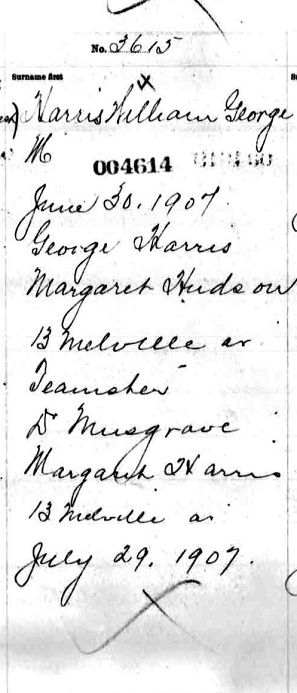 No. 3615
Surname first
Harris William George
M
004614
June 30. 1907
George Harris
Margaret Hudson
13 Melville av
Teamster
Dr Musgrave
Margaret Harris
13 Melville av
July 29. 1907.